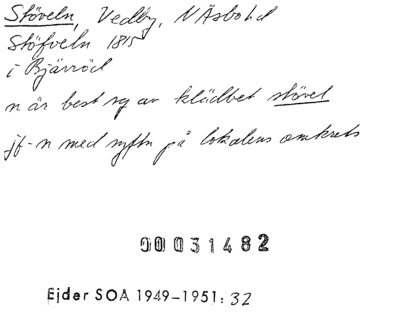 Stöveln, Vedby, N Åsbo hd
Stöfveln 1815
i Bjärröd
n är best sg av klädbet stövel
jf-n med syftn på lokalens omkrets
00031482
Ejder SOA 1949-1951: 32